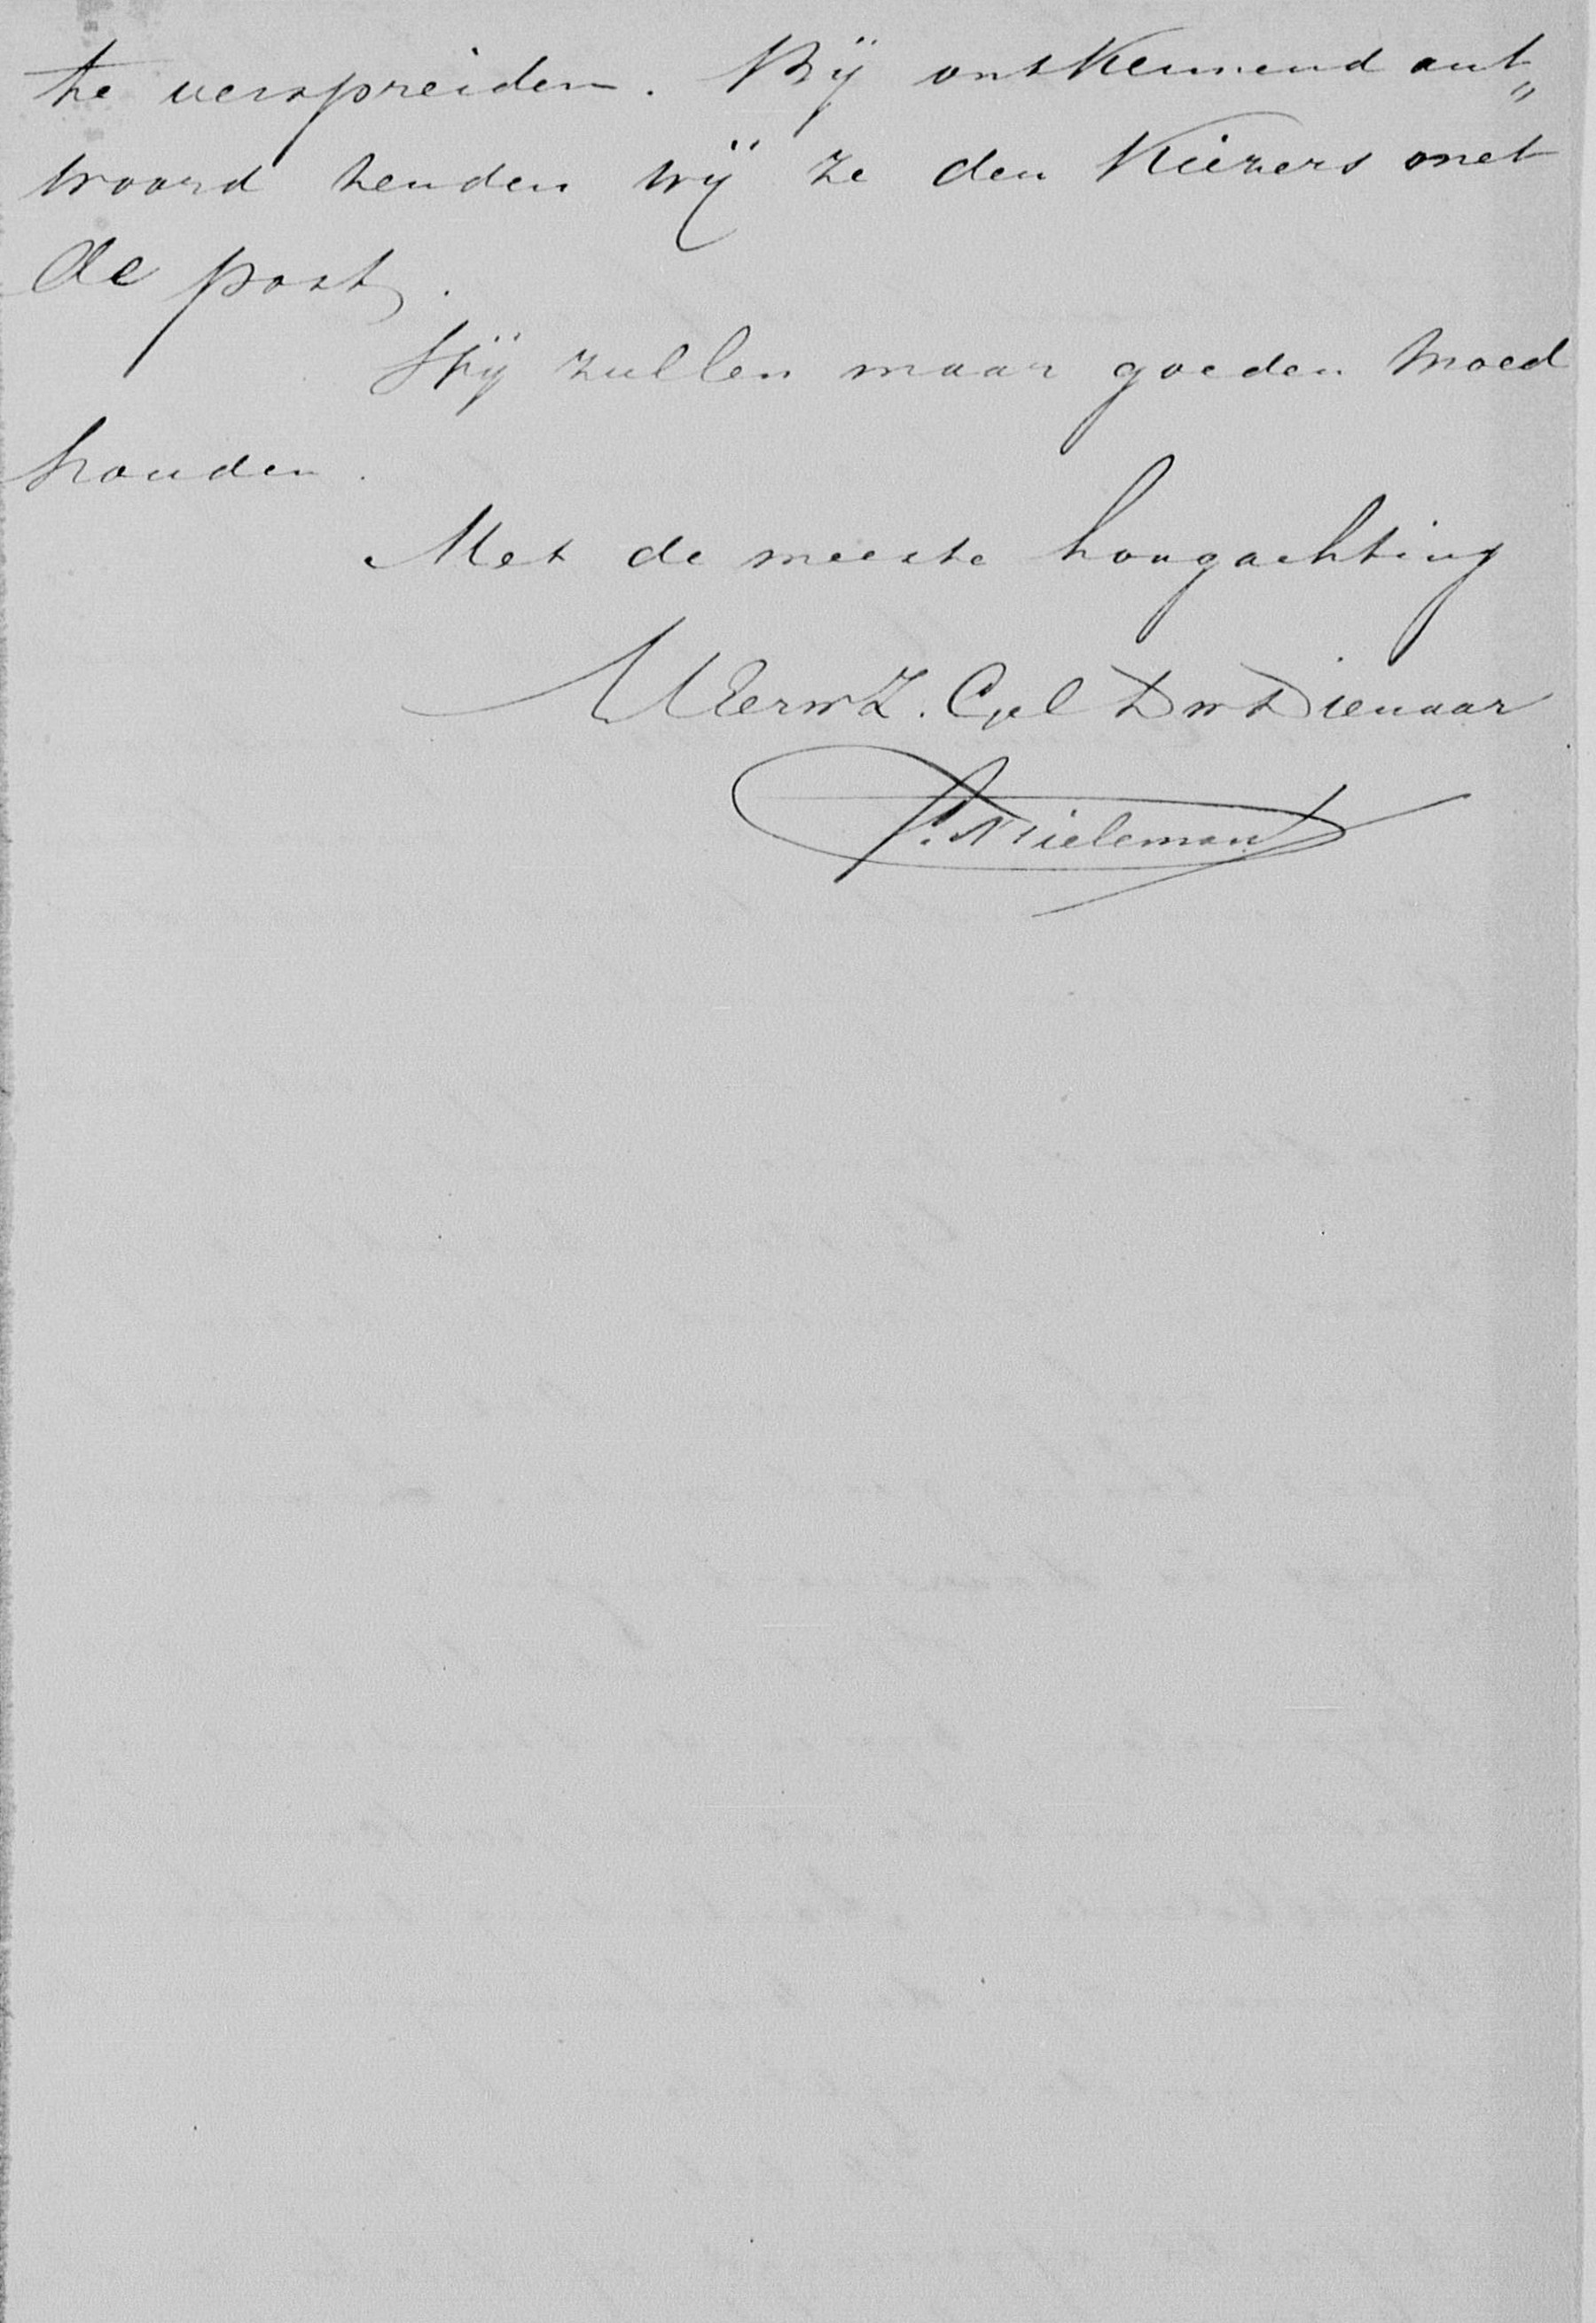 te verspreiden. Bij ontkennend ant„
woord zenden wij ze den Kiezers met
de post.
Wij zullen maar goeden moed
houden.
Met de meeste hoogachting
UEerwZ. Gel Dw Dienaar